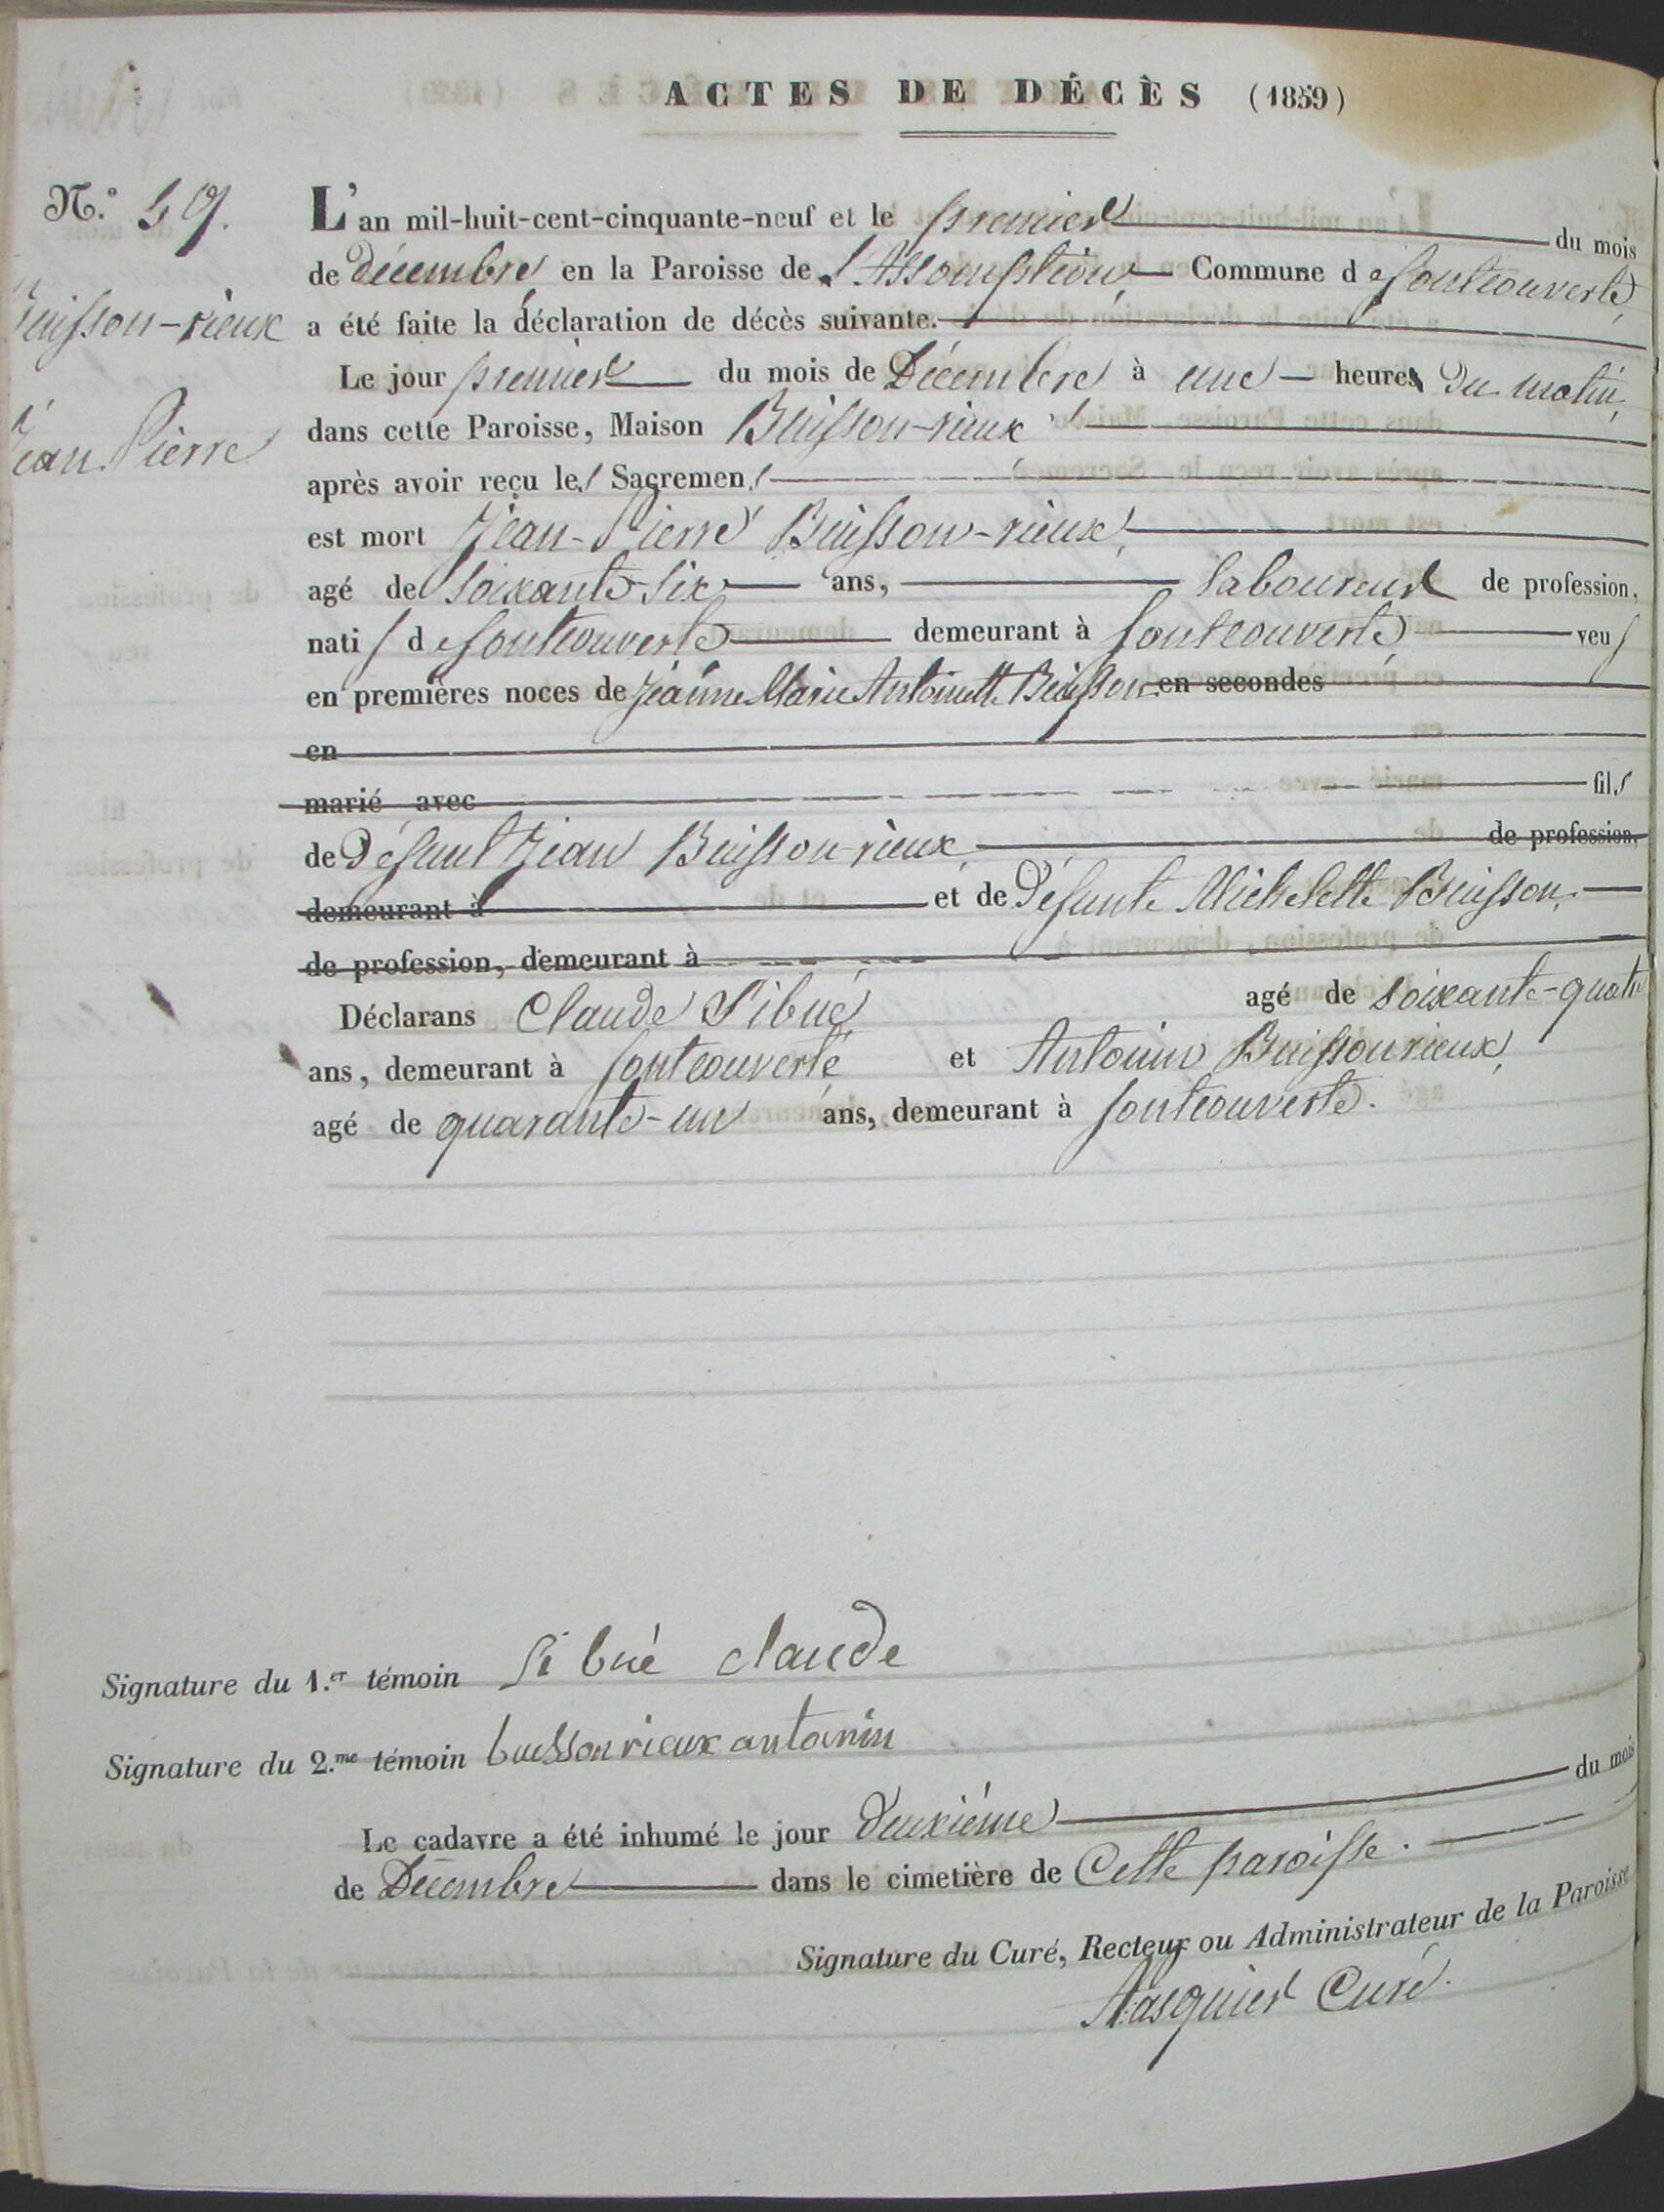 ACTES DE DÉCÈS (1859)
N.º 59.
L'an mil-huit-cent-cinquante-neuf et le premier du mois
de Décembre en la Paroisse de l'Assomption, Commune de fontcouverte,
Buisson-rieux
a été faite la déclaration de décès suivante.
Le jour premier du mois de Décembre à une heures du matin,
dans cette Paroisse, Maison Buisson-rieux
Jean Pierre
après avoir reçu les Sacremens
est mort Jean-Pierre Buisson-rieux,
agé de soixante-six ans, laboureur de profession,
natif de fontcouverte demeurant à fontcouverte veuf
en premières noces de Jeanne Marie Antoinette Buisson. en secondes
en
marié avec fils
de Défunt Jean Buisson-rieux, de profession,
demeurant à et de Défunte Michelette Buisson,
de profession, demeurant à
Déclarans Claude Sibué agé de soixante-quatre
ans, demeurant à fontcouverte et Antonin Buisson rieux,
agé de quarante-un ans, demeurant à fontcouverte.
Signature du 1.er témoin Si bué claude
Signature du 2.me témoin buisson rieux antonin
Le cadavre a été inhumé le jour deuxième du mois
de Décembre dans le cimetière de Cette paroisse.
Signature du Curé, Recteur ou Administrateur de la Paroisse
Curé.